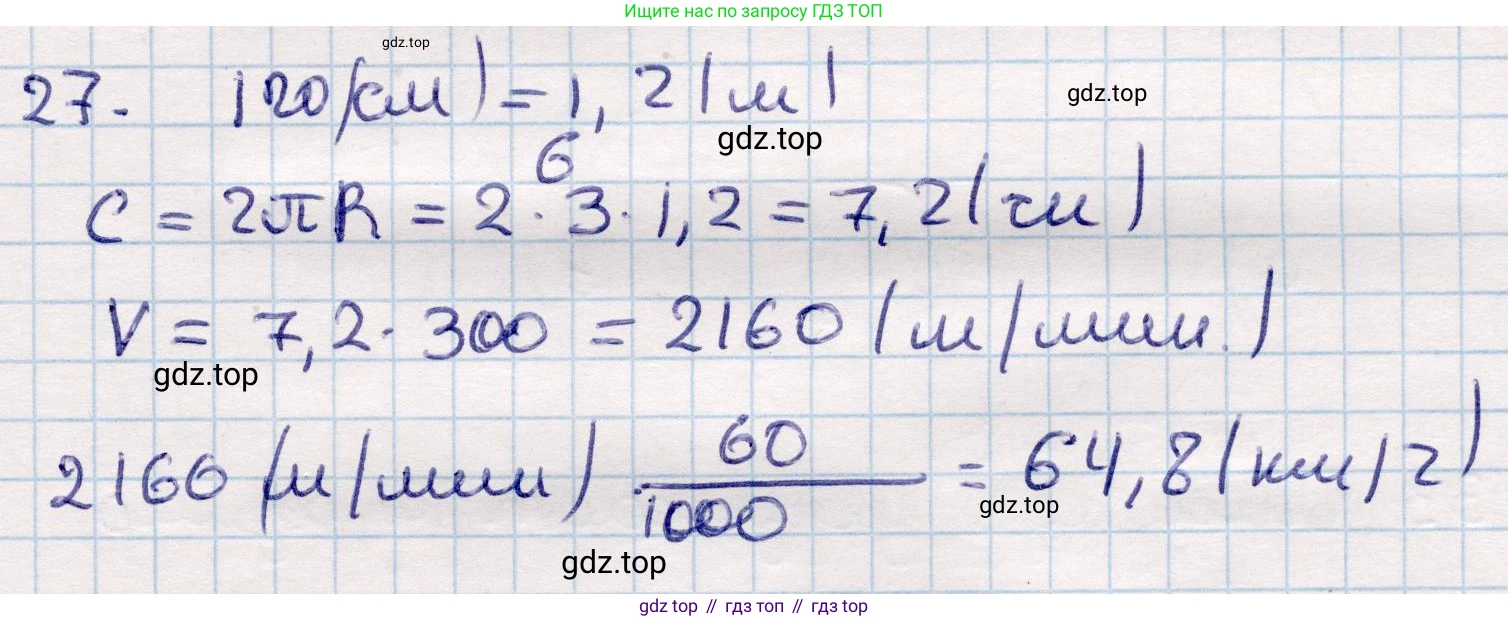 Ищите нас по запросу ГДЗ ТОП
gdz.top
27. 120(см) = 1,2(м)
gdz.top
gdz.top
6
C = 2πR = 2·3·1,2 = 7,2(м)
V = 7,2·300 = 2160(м/мин.)
gdz.top
2160(м/мин) · 60/1000 = 64,8(км/ч)
gdz.top
gdz.top
gdz top // гдз топ // гдз top